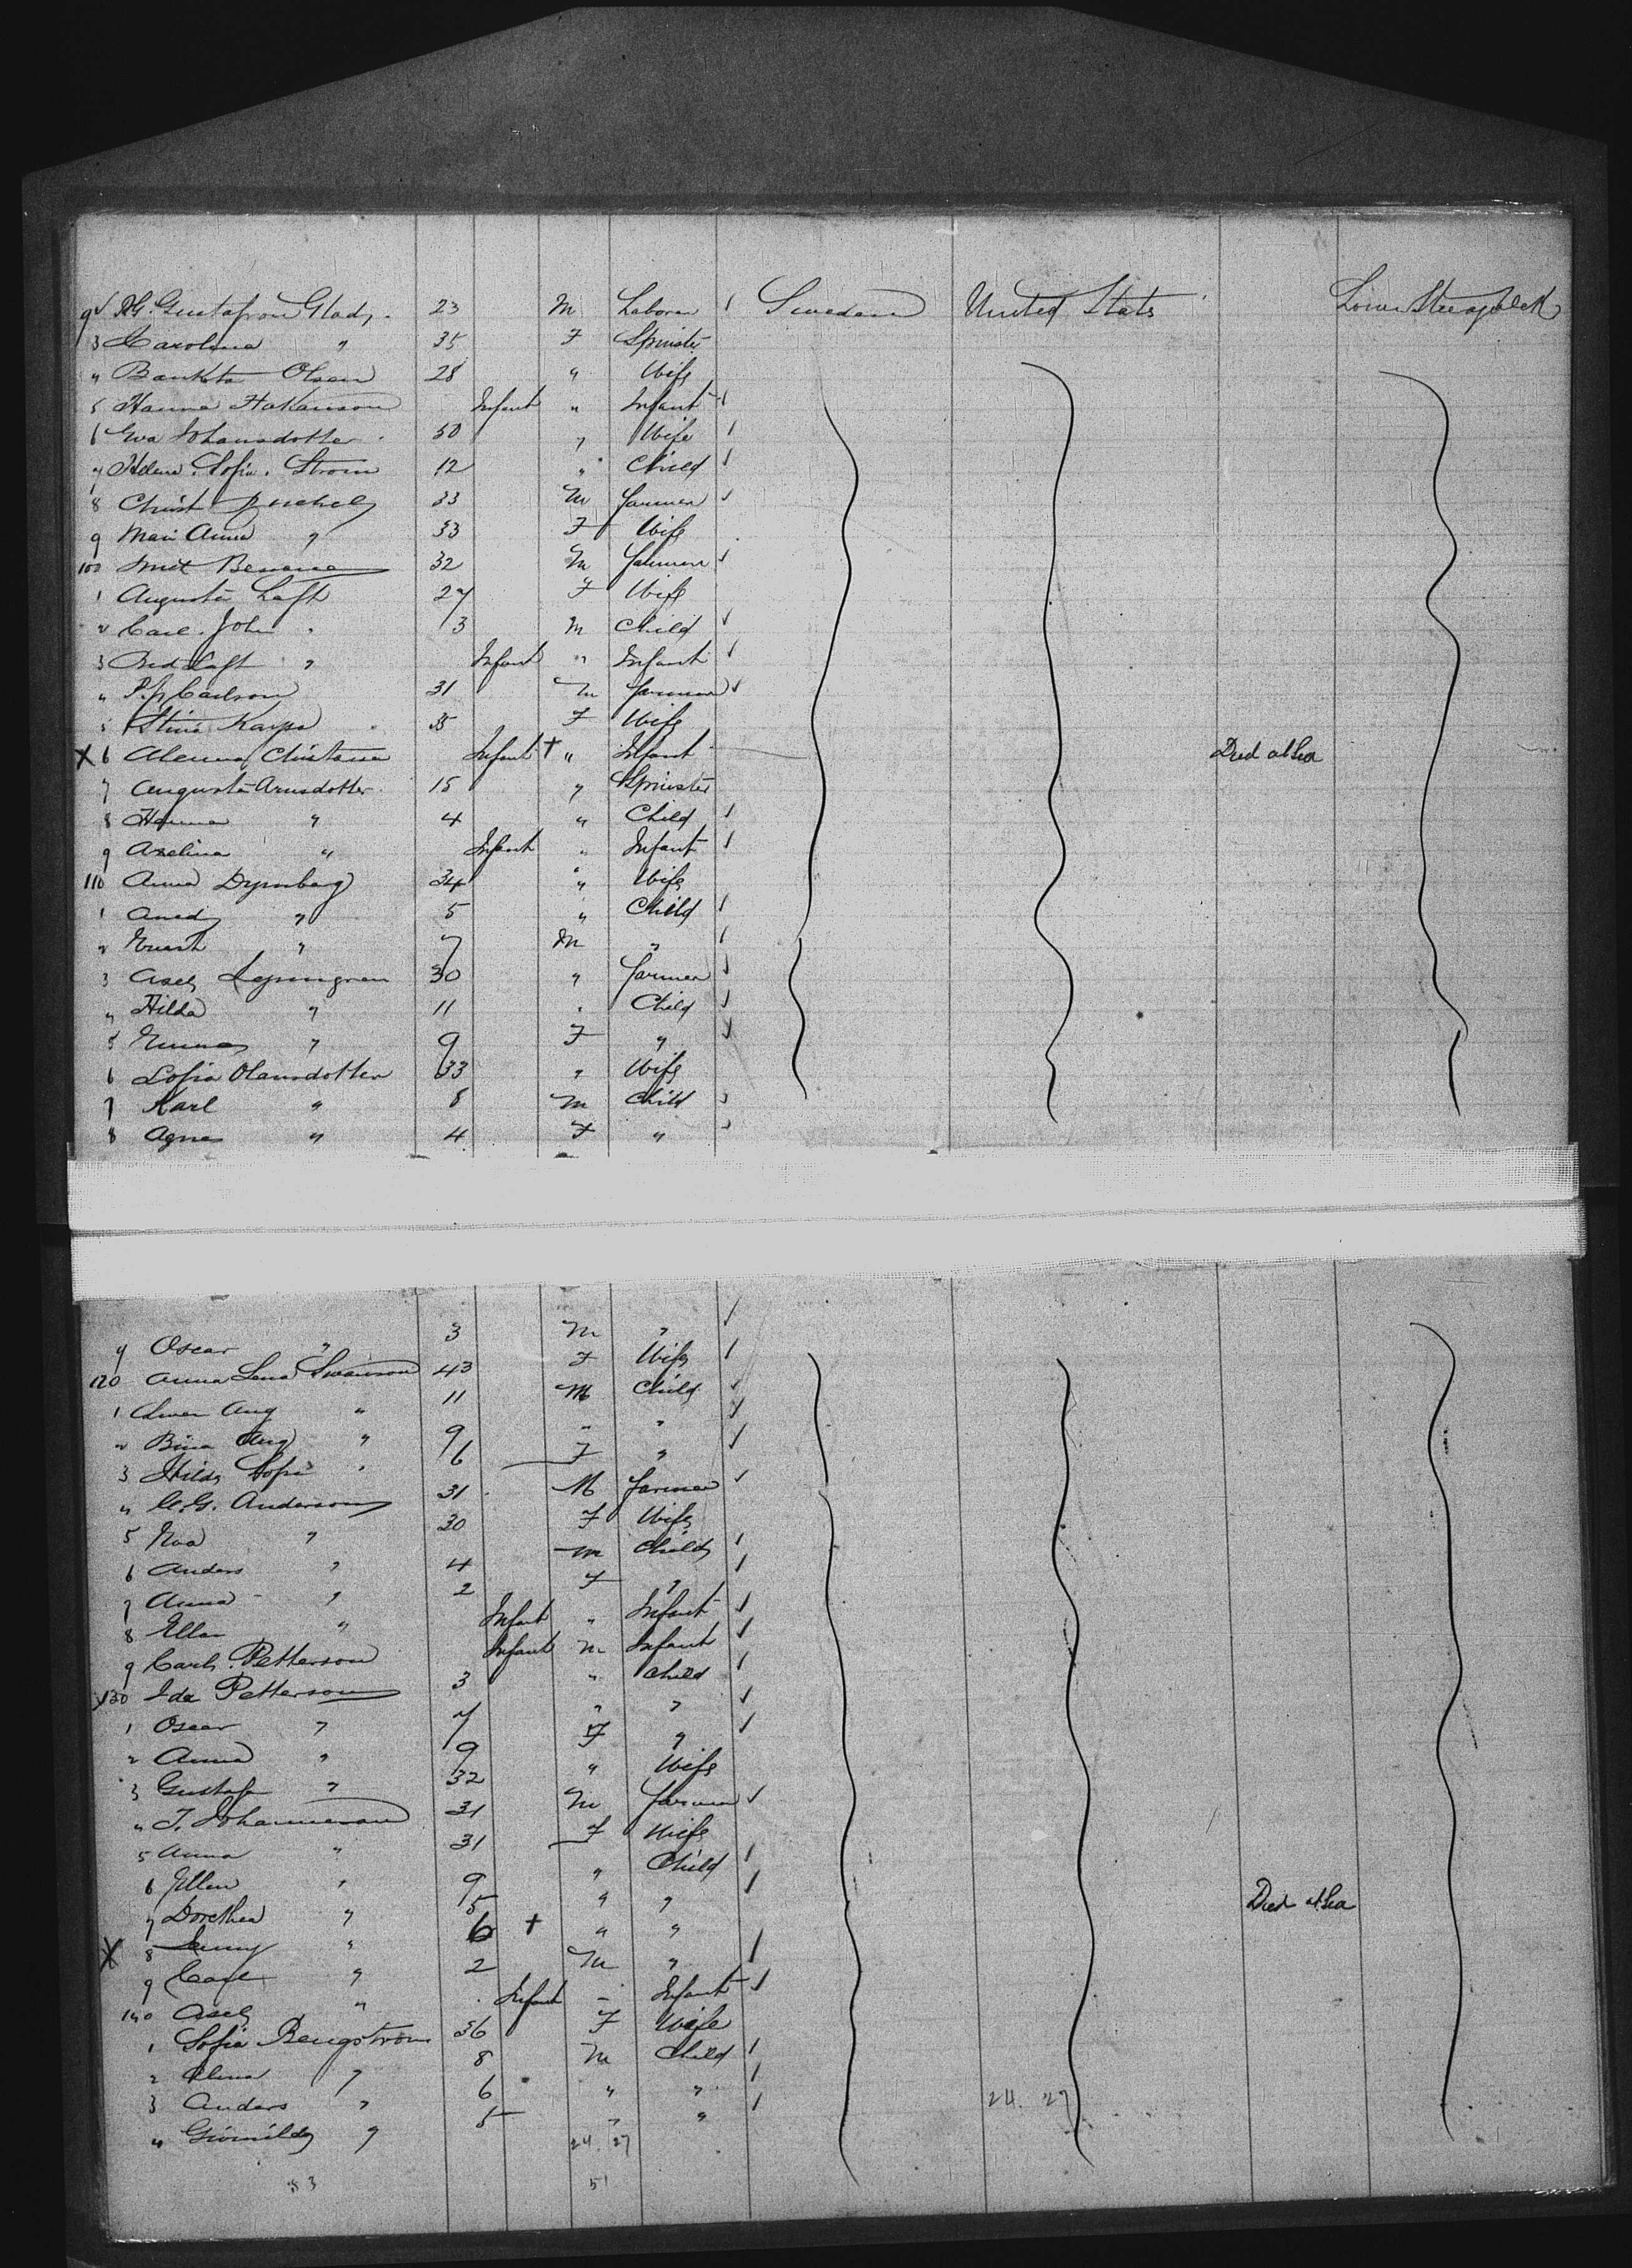 92 A.G. Gustafson Glad, . 23 M Laborer Sweden United States Lower Steerage deck
3 Carolina " 35 F Spinster
4 Olsen 28 " Wife
5 Hanna Hakanson Infant " Infant
6 Eva Johansdotter 50 " Wife
7 Helena Sofia Strom 12 " Child
8 Christ 33 M Farmer
9 Mari Anna " 33 F Wife
100 32 M Farmer
1 Augusta Laft 27 F Wife
2 Carl John " 3 M Child
3 Laft " Infant " Infant
4 Carlson 31 M Farmer
5 Stina Kajsa 35 F Wife
X 6 Christina Infant + " Infant Died at Sea
7 Augusta Arnsdotter 15 " Spinster
8 Hanna " 4 " Child
9 Axelina " Infant " Infant
110 Anna 34 " Wife
1 " 5 " Child
2 " 7 M "
3 Axel 30 " Farmer
4 Hilda " 11 " Child
5 Emma " 9 F "
6 Sofia Olausdotter 33 " Wife
7 Karl " 8 M Child
8 Agnes " 4 F "
9 Oscar " 3 M "
120 Anna Lena Swanson 43 F Wife
1 Swen Aug " 11 M Child
2 Aug " 9 " "
3 Hilda Sofi " 6 F "
4 Anderson 31 M Farmer
5 Eva " 30 F Wife
6 Anders " 4 M Child
7 Anna " 2 F "
8 Ellen " Infant " Infant
9 Carl Petterson Infant M Infant
130 Ida Petterson 3 " Child
1 Oscar " 7 " "
2 Anna " 9 F "
3 Gustaf " 32 " Wife
4 J. Johanneson 31 M Farmer
5 Anna " 31 F Wife
6 Ellen " 9 " Child
7 Dorethea " 5 " "
X 8 Jenny " 6 + " " Died at Sea
9 Carl " 2 M "
140 Axel " Infant " Infant
1 Sofia Bengstrom 36 F Wife
2 " 8 M Child
3 Anders " 6 " "
4 " 5 " "
24. 27
24. 27
53
51